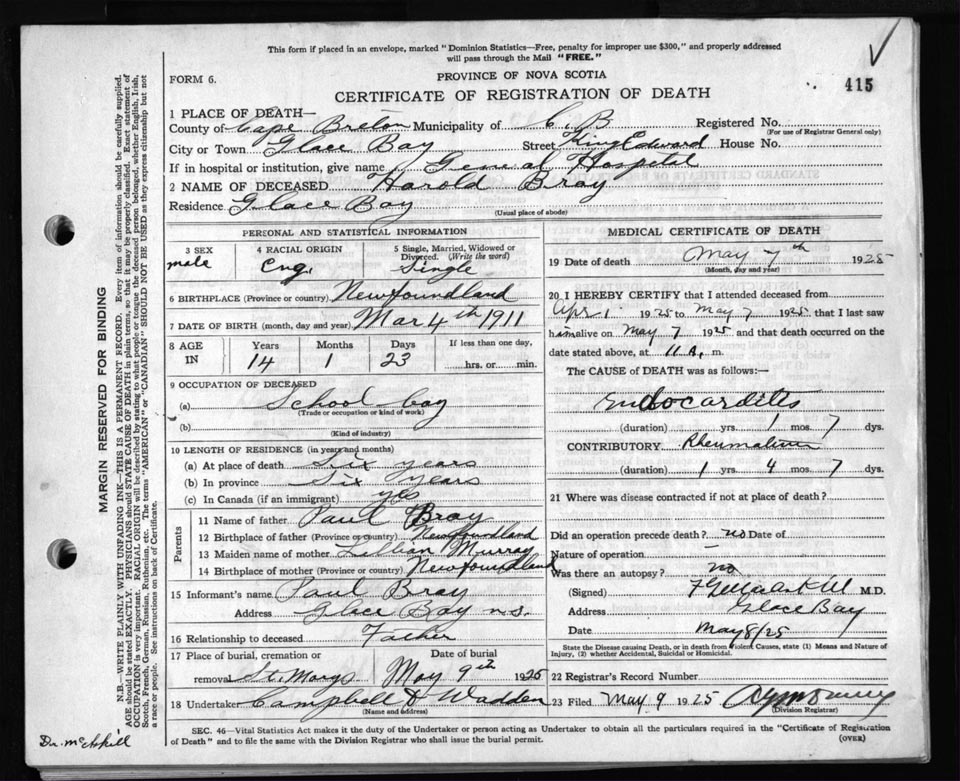 This form if placed in an envelope, marked "Dominion Statistics—Free, penalty for improper use $300," and properly addressed
will pass through the Mail "FREE."
FORM 6.
PROVINCE OF NOVA SCOTIA
415
CERTIFICATE OF REGISTRATION OF DEATH
1 PLACE OF DEATH—
County of Cape Breton Municipality of C. B Registered No.
(For use of Registrar General only)
City or Town Glace Bay Street King Edward House No.
If in hospital or institution, give name General Hospital
2 NAME OF DECEASED Harold Bray
Residence Glace Bay
(Usual place of abode)
PERSONAL AND STATISTICAL INFORMATION
3 SEX male
4 RACIAL ORIGIN Eng.
5 Single, Married, Widowed or Divorced. (Write the word) Single
6 BIRTHPLACE (Province or country) Newfoundland
7 DATE OF BIRTH (month, day and year) Mar 4th 1911
8 AGE IN Years 14 Months 1 Days 23 If less than one day, hrs. or min.
9 OCCUPATION OF DECEASED
(a) School boy
(Trade or occupation or kind of work)
(b)
(Kind of industry)
10 LENGTH OF RESIDENCE (in years and months)
(a) At place of death Six years
(b) In province Six years
(c) In Canada (if an immigrant) yes
Parents
11 Name of father Paul Bray
12 Birthplace of father (Province or country) Newfoundland
13 Maiden name of mother Lillian Murray
14 Birthplace of mother (Province or country) Newfoundland
15 Informant's name Paul Bray
Address Glace Bay n.s.
16 Relationship to deceased Father
17 Place of burial, cremation or removal St. Marys
Date of burial May 9th 1925
18 Undertaker Campbell & Wadden
(Name and address)
MEDICAL CERTIFICATE OF DEATH
19 Date of death May 7th 1925
(Month, day and year)
20 I HEREBY CERTIFY that I attended deceased from
Apr 1 1925 to May 7 1925 that I last saw
him alive on May 7 1925 and that death occurred on
date stated above, at 11 A. m.
The CAUSE of DEATH was as follows:—
Endocarditis
(duration) yrs. 1 mos. 7 dys.
CONTRIBUTORY Rheumatism
(duration) 1 yrs. 4 mos. 7 dys.
21 Where was disease contracted if not at place of death?
Did an operation precede death? no Date of
Nature of operation —
Was there an autopsy? no
(Signed) M.D.
Address Glace Bay
Date May 8/25
State the Disease causing Death, or in death from violent Causes, state (1) Means and Nature of
Injury, (2) whether Accidental, Suicidal or Homicidal.
22 Registrar's Record Number
23 Filed May 9 1925
(Division Registrar)
SEC. 46—Vital Statistics Act makes it the duty of the Undertaker or person acting as Undertaker to obtain all the particulars required in the "Certificate of Registration
of Death" and to file the same with the Division Registrar who shall issue the burial permit.
(OVER)
MARGIN RESERVED FOR BINDING
N.B.—WRITE PLAINLY WITH UNFADING INK—THIS IS A PERMANENT RECORD. Every item of information should be carefully supplied.
AGE should be stated EXACTLY. PHYSICIANS should STATE CAUSE OF DEATH in plain terms, so that it may be properly classified. Exact statement of
OCCUPATION is very important. RACIAL ORIGIN will be described by stating to what people or tongue the deceased person belonged, whether English, Irish,
Scotch, French, German, Russian, Ruthenian, etc. The terms "AMERICAN" or "CANADIAN" SHOULD NOT BE USED as they express citizenship but not
a race or people. See instructions on back of Certificate.